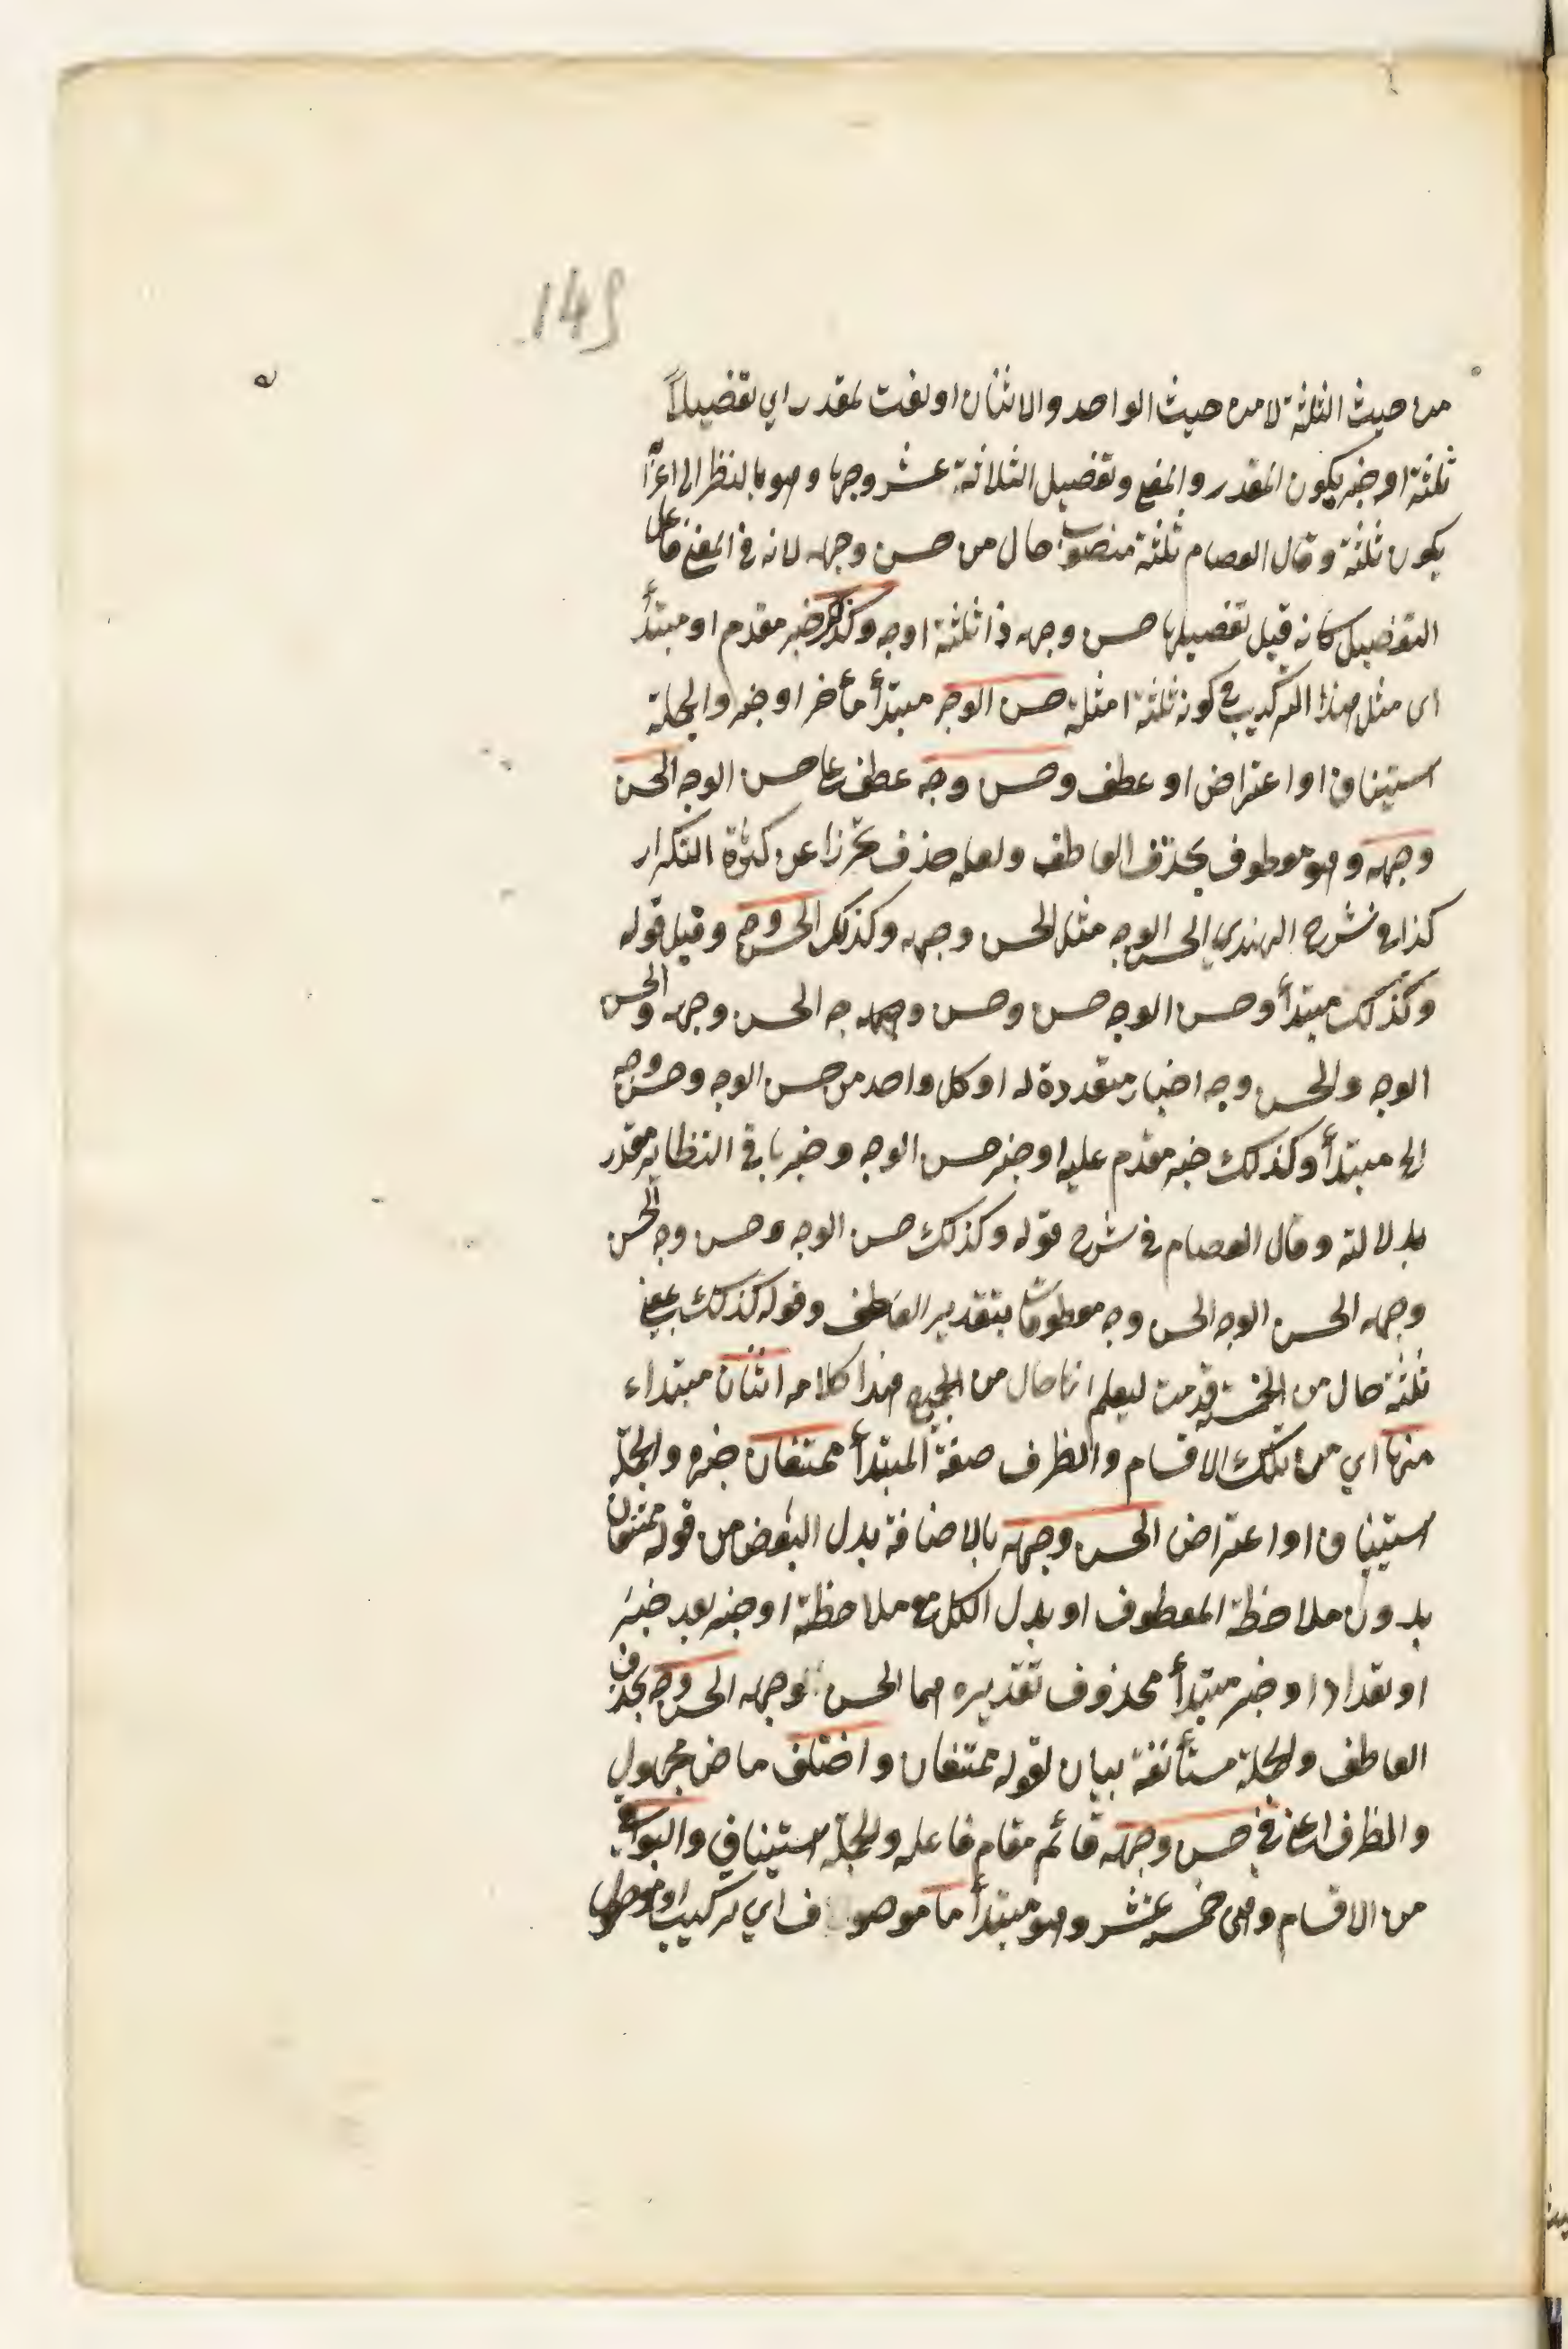 149
من حيث الثلثة لا من حيث الواحد والاثنان او نعت لمقدر اي تفضيلاً
ثلثة او خبر يكون المقدر والمفع وتفضيل الثلاثة عشر وجها وهو بالنظر الى
يكون ثلثة وقال العصام ثلثة منصوب حال من حسن وجهه لانه في المعنى فاعل
التفضيل كانه قيل تفضيلها حسن وجهه ذا ثلثة اوجه وكذلك خبر مقدم او مبتدأ
اى مثل هذا التركيب في كونه ثلثة امثلة حسن الوجه مبتدأ مأخر او خبر والجملة
استيناف او اعتراض او عطف وحسن وجه عطف على حسن الوجه الحسن
وجهه وهو معطوف بحذف العاطف ولعله حذف تحرزا عن كثرة التكرار
كذا في شرح الهندي الحسن الوجه مثل الحسن وجهه وكذلك الحسن وجه وقيل قوله
وكذلك مبتدأ وحسن الوجه حسن وحسن وجه الحسن وجهه والحسن
الوجه والحسن وجه اخبار متعددة له او كل واحد من حسن الوجه وحسن وجه
الخ مبتدأ وكذلك خبر مقدم عليه او خبر حسن الوجه وخبر باقي النظاير مقدر
بدلالته وقال العصام في شرح قوله وكذلك حسن الوجه وحسن وجه الحسن
وجهه الحسن الوجه الحسن وجه معطوفات بتقدير العاطف وقوله كذلك بمعنى
ثلثة حال من الخمسة قدمت ليعلم انها حال من الجميع هذا كلامه اثنان مبتداء
منها اي من تلك الاقسام والظرف صفة المبتدأ ممتنعان خبره والجملة
استيناف او اعتراض الحسن وجهه بالاضافة بدل البعض من قوله ممتنعان
بدون ملاحظة المعطوف او بدل الكل مع ملاحظة او خبر بعد خبر
او تعداد او خبر مبتدأ محذوف تقديره هما الحسن وجهه الحسن وجه بحذف
العاطف والجملة مستأنفة بيان لقوله ممتنعان واختلف ماض مجهول
والظرف اعني في حسن وجهه قائم مقام فاعله والجملة استيناف والبواقي
من الاقسام وهى خمسة عشر وهو مبتدأ ما موصوف اي تركيب او موصول